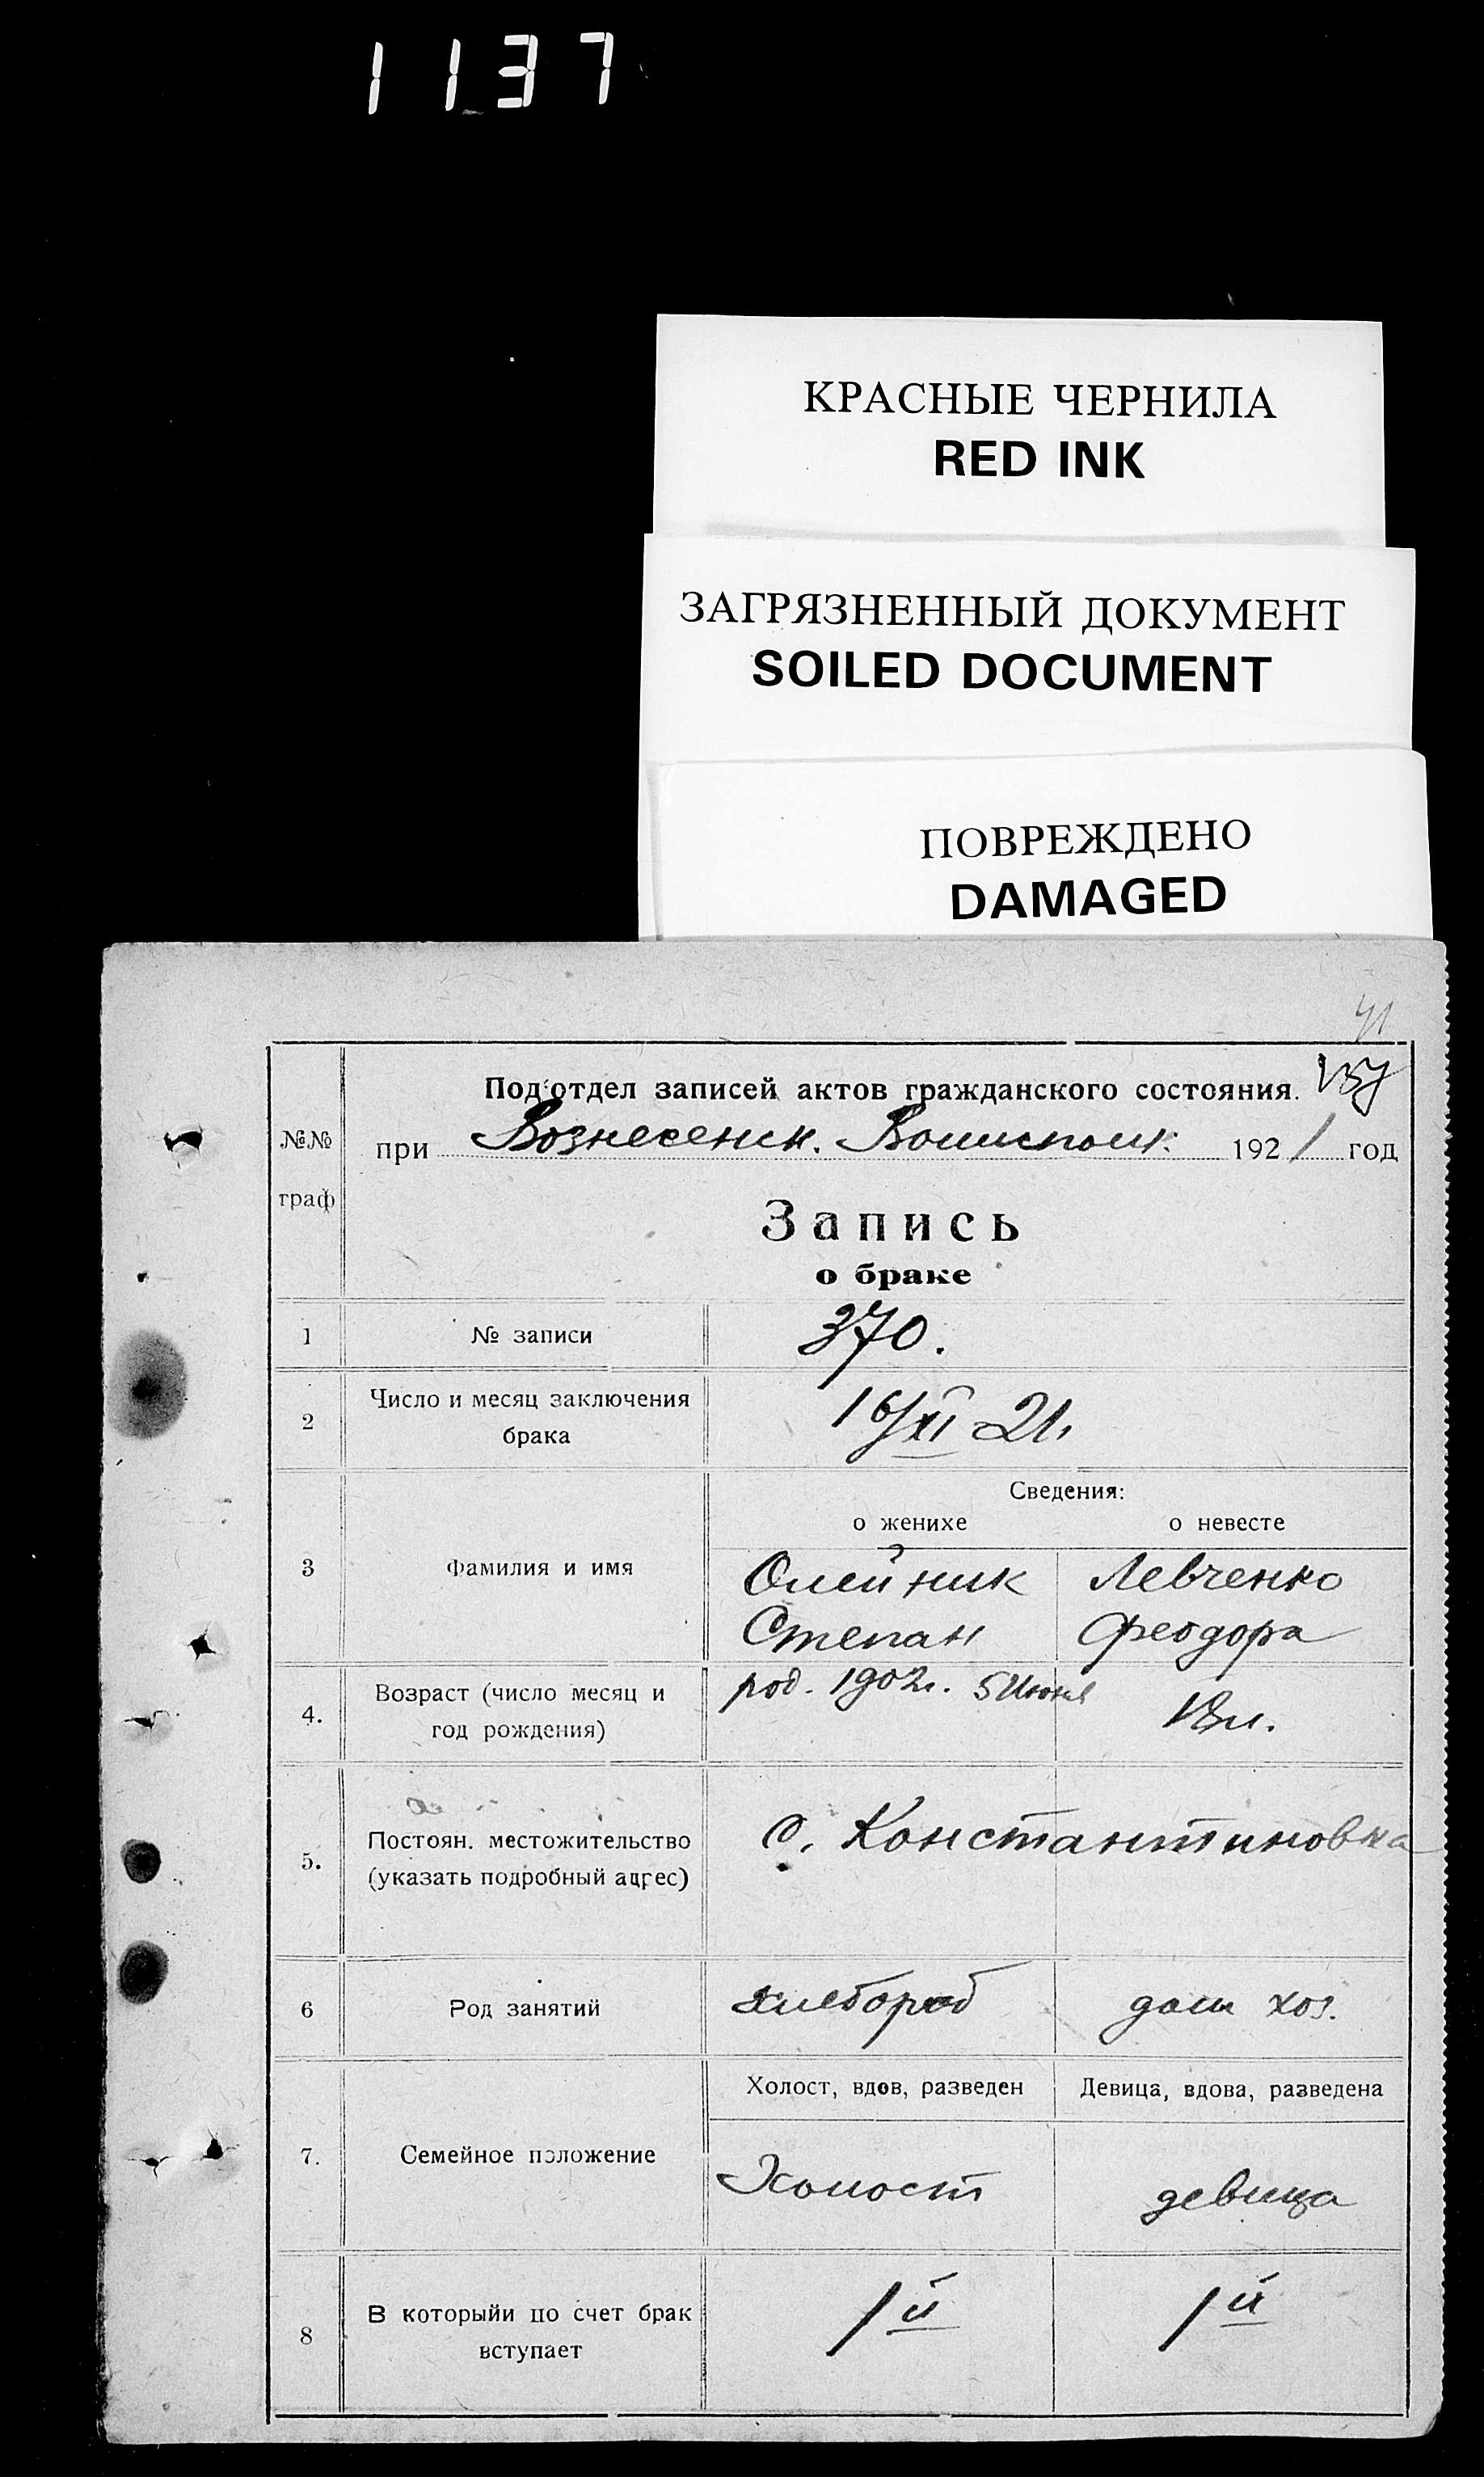 1137
КРАСНЫЕ ЧЕРНИЛА
RED INK
ЗАГРЯЗНЕННЫЙ ДОКУМЕНТ
SOILED DOCUMENT
ПОВРЕЖДЕНО
DAMAGED
41
Под'отдел записей актов гражданского состояния.
№№ граф
при Вознесенск. Волисполк. 1921 год
Запись
о браке
1 № записи 370.
2 Число и месяц заключения брака 16/XI 21.
Сведения:
о женихе о невесте
3 Фамилия и имя Олейник Левченко
Степан Феодора
4. Возраст (число месяц и год рождения) род. 1902г. 5 Июня 18 л.
5. Постоян. местожительство (указать подробный адрес) с. Константиновка
6 Род занятий хлебороб дом хоз.
Холост, вдов, разведен Девица, вдова, разведена
7. Семейное положение Холост девица
8 В которыйи по счет брак вступает 1й 1й